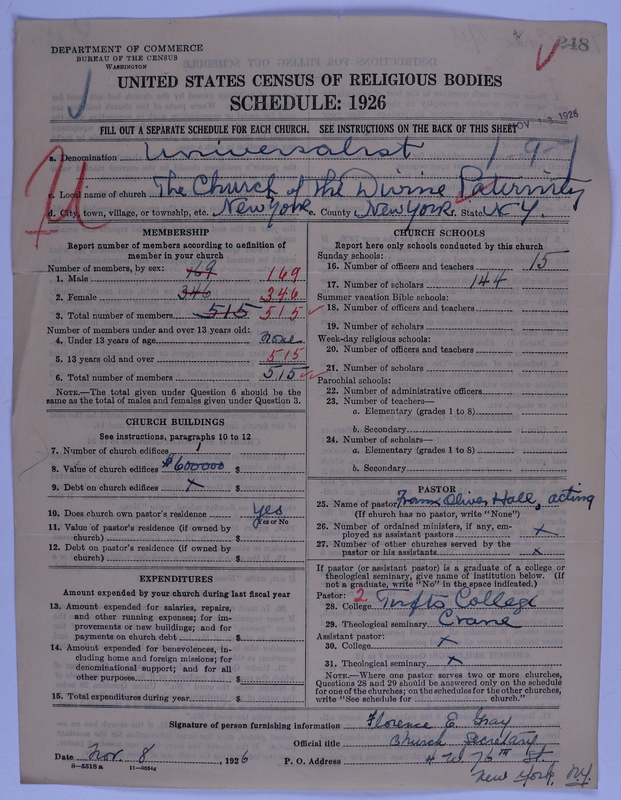 248
DEPARTMENT OF COMMERCE
BUREAU OF THE CENSUS
WASHINGTON
UNITED STATES CENSUS OF RELIGIOUS BODIES
SCHEDULE: 1926
NOV 13 1926
FILL OUT A SEPARATE SCHEDULE FOR EACH CHURCH. SEE INSTRUCTIONS ON THE BACK OF THIS SHEET
a. Denomination Universalist 1 9-7
c. Local name of church The Church of the Divine Paternity
d. City, town, village, or township, etc. New York e. County New York f. State N.Y.
MEMBERSHIP
Report number of members according to definition of
member in your church
Number of members, by sex:
1. Male 169 169
2. Female 346 346
3. Total number of members 515 515
Number of members under and over 13 years old:
4. Under 13 years of age none
5. 13 years old and over 515
6. Total number of members 515
NOTE.—The total given under Question 6 should be the
same as the total of males and females given under Question 3.
CHURCH BUILDINGS
See instructions, paragraphs 10 to 12
7. Number of church edifices 1
8. Value of church edifices $600000 $
9. Debt on church edifices x $
10. Does church own pastor's residence yes
Yes or No
11. Value of pastor's residence (if owned by
church) $
12. Debt on pastor's residence (if owned by
church) $
EXPENDITURES
Amount expended by your church during last fiscal year
13. Amount expended for salaries, repairs,
and other running expenses; for im-
provements or new buildings; and for
payments on church debt $
14. Amount expended for benevolences, in-
cluding home and foreign missions; for
denominational support; and for all
other purposes $
15. Total expenditures during year $
CHURCH SCHOOLS
Report here only schools conducted by this church
Sunday schools:
16. Number of officers and teachers 15
17. Number of scholars 144
Summer vacation Bible schools:
18. Number of officers and teachers
19. Number of scholars
Week-day religious schools:
20. Number of officers and teachers
21. Number of scholars
Parochial schools:
22. Number of administrative officers
23. Number of teachers—
a. Elementary (grades 1 to 8)
b. Secondary
24. Number of scholars—
a. Elementary (grades 1 to 8)
b. Secondary
PASTOR
25. Name of pastor Frank Oliver Hall, acting
(If church has no pastor, write "None")
26. Number of ordained ministers, if any, em-
ployed as assistant pastors x
27. Number of other churches served by the
pastor or his assistants x
If pastor (or assistant pastor) is a graduate of a college or
theological seminary, give name of institution below. (If
not a graduate, write "No" in the space indicated.)
Pastor: 2
28. College Tufts College
29. Theological seminary Crane
Assistant pastor:
30. College x
31. Theological seminary x
NOTE.—Where one pastor serves two or more churches,
Questions 28 and 29 should be answered only on the schedule
for one of the churches; on the schedules for the other churches,
write "See schedule for church."
Signature of person furnishing information Florence E. Gray
Official title Church Secretary
Date Nov. 8, 1926 P. O. Address 4 W 76th St.
8—5518a New York, N.Y.